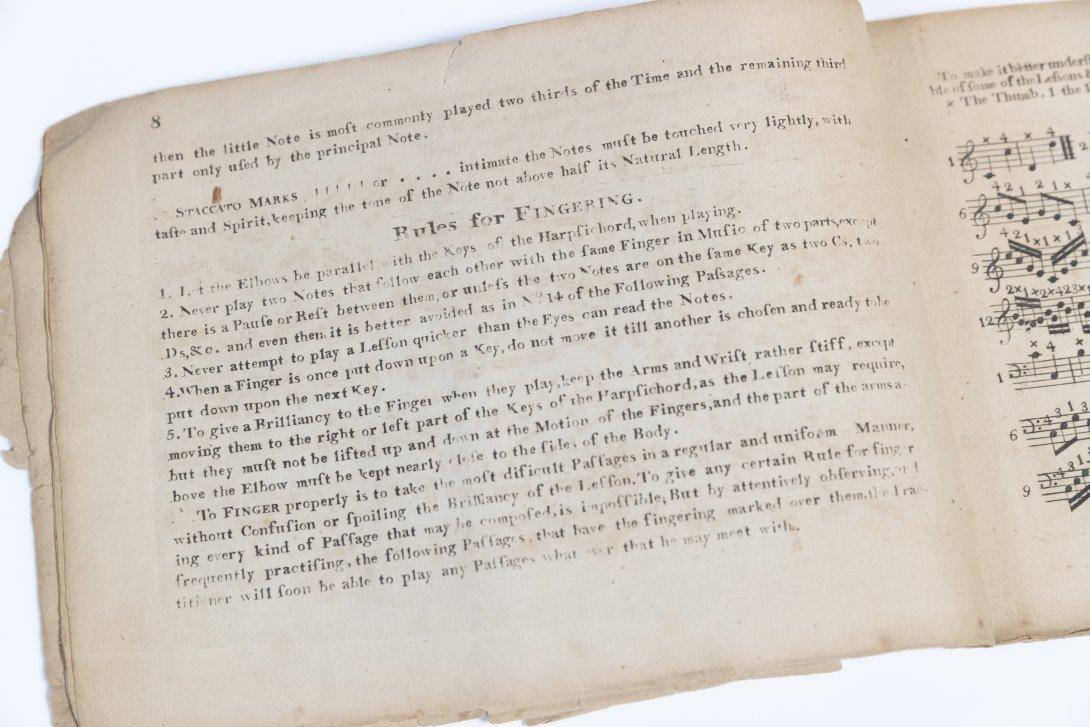 8
then the little Note is moſt commonly played two thirds of the Time and the remaining third
part only uſed by the principal Note.
STACCATO MARKS ' ' ' ' ' or . . . . intimate the Notes muſt be touched very lightly, with
taſte and Spirit, keeping the tone of the Note not above half its Natural Length.
Rules for FINGERING.
1. Let the Elbows be parallel with the Keys of the Harpſichord, when playing.
2. Never play two Notes that follow each other with the ſame Finger in Muſic of two parts, except
there is a Pauſe or Reſt between them, or unleſs the two Notes are on the ſame Key as two Cs, two
Ds, &c. and even then it is better avoided as in No. 14 of the Following Paſsages.
3. Never attempt to play a Leſſon quicker than the Eyes can read the Notes.
4. When a Finger is once put down upon a Key, do not move it till another is choſen and ready to be
put down upon the next Key.
5. To give a Brilliancy to the Finger when they play, keep the Arms and Wriſt rather ſtiff, except
moving them to the right or left part of the Keys of the Harpſichord, as the Leſſon may require,
but they muſt not be lifted up and down at the Motion of the Fingers, and the part of the arms a-
bove the Elbow muſt be kept nearly cloſe to the ſides of the Body.
To FINGER properly is to take the moſt dificult Paſſages in a regular and uniform Manner,
without Confuſion or ſpoiling the Brilliancy of the Leſſon. To give any certain Rule for finger
ing every kind of Paſſage that may be compoſed, is impoſſible; But by attentively obſerving, and
frequently practiſing, the following Paſſages, that have the fingering marked over them, the Prac-
titioner will ſoon be able to play any Paſſages whatever that he may meet with.
To make it better underſ
ble of ſome of the Leſſons
× The Thumb. 1 the
1 × 4 × 4 2
6 4 2 1 2 1 ×
9 4 2 1 × 1 ×
12 2 × 1 × 2 × 4 2 3 ×
1 × 4
6 4 3 1 3
9 4 3 1 3